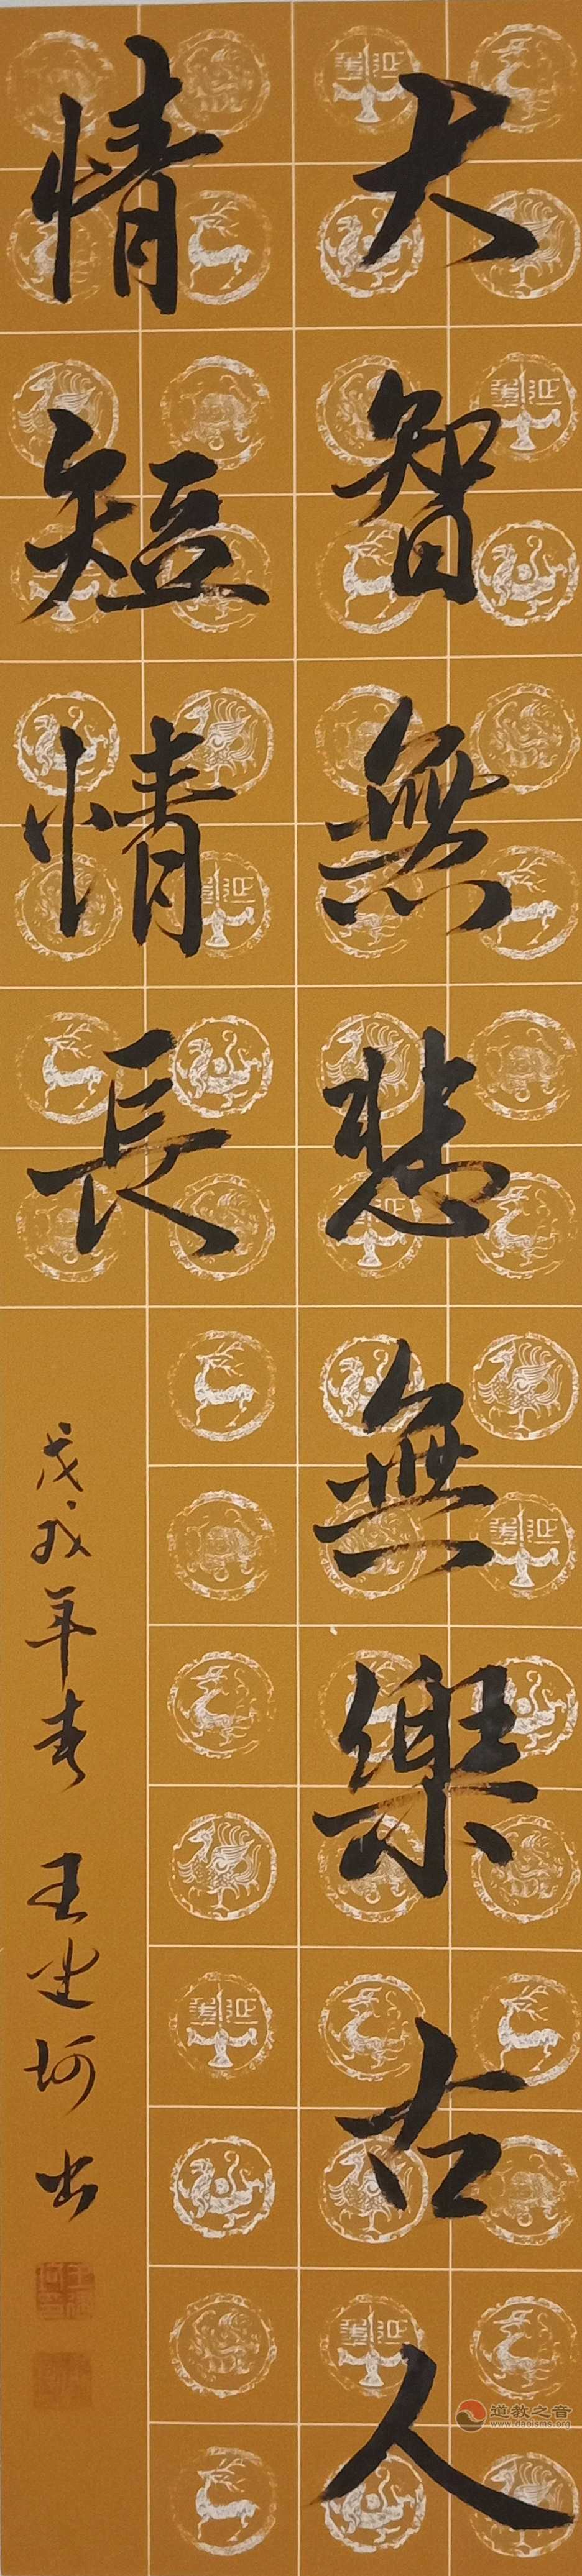 大智無悲無樂古人
情短情長
戊戌年春 王史坷书
道教之音
www.daoisms.org